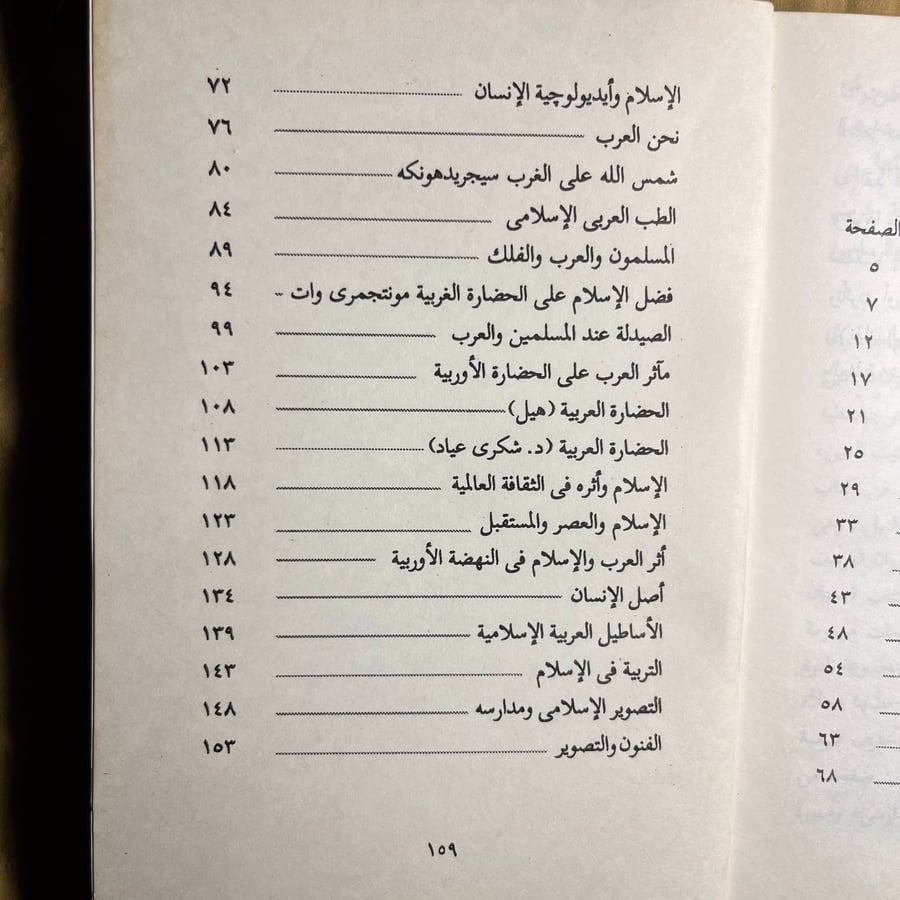 الصفحة
٥
٧
١٢
١٧
٢١
٢٥
٢٩
٣٣
٣٨
٤٣
٤٨
٥٤
٥٨
٦٣
٦٨
الإسلام وأيديولوچية الإنسان ٧٢
نحن العرب ٧٦
شمس الله على الغرب سيجريدهونكه ٨٠
الطب العربى الإسلامى ٨٤
المسلمون والعرب والفلك ٨٩
فضل الإسلام على الحضارة الغربية مونتجمرى وات ٩٤
الصيدلة عند المسلمين والعرب ٩٩
مآثر العرب على الحضارة الأوربية ١٠٣
الحضارة العربية (هيل) ١٠٨
الحضارة العربية (د. شكرى عياد) ١١٣
الإسلام وأثره فى الثقافة العالمية ١١٨
الإسلام والعصر والمستقبل ١٢٣
أثر العرب والإسلام فى النهضة الأوربية ١٢٨
أصل الإنسان ١٣٤
الأساطيل العربية الإسلامية ١٣٩
التربية فى الإسلام ١٤٣
التصوير الإسلامى ومدارسه ١٤٨
الفنون والتصوير ١٥٣
١٥٩